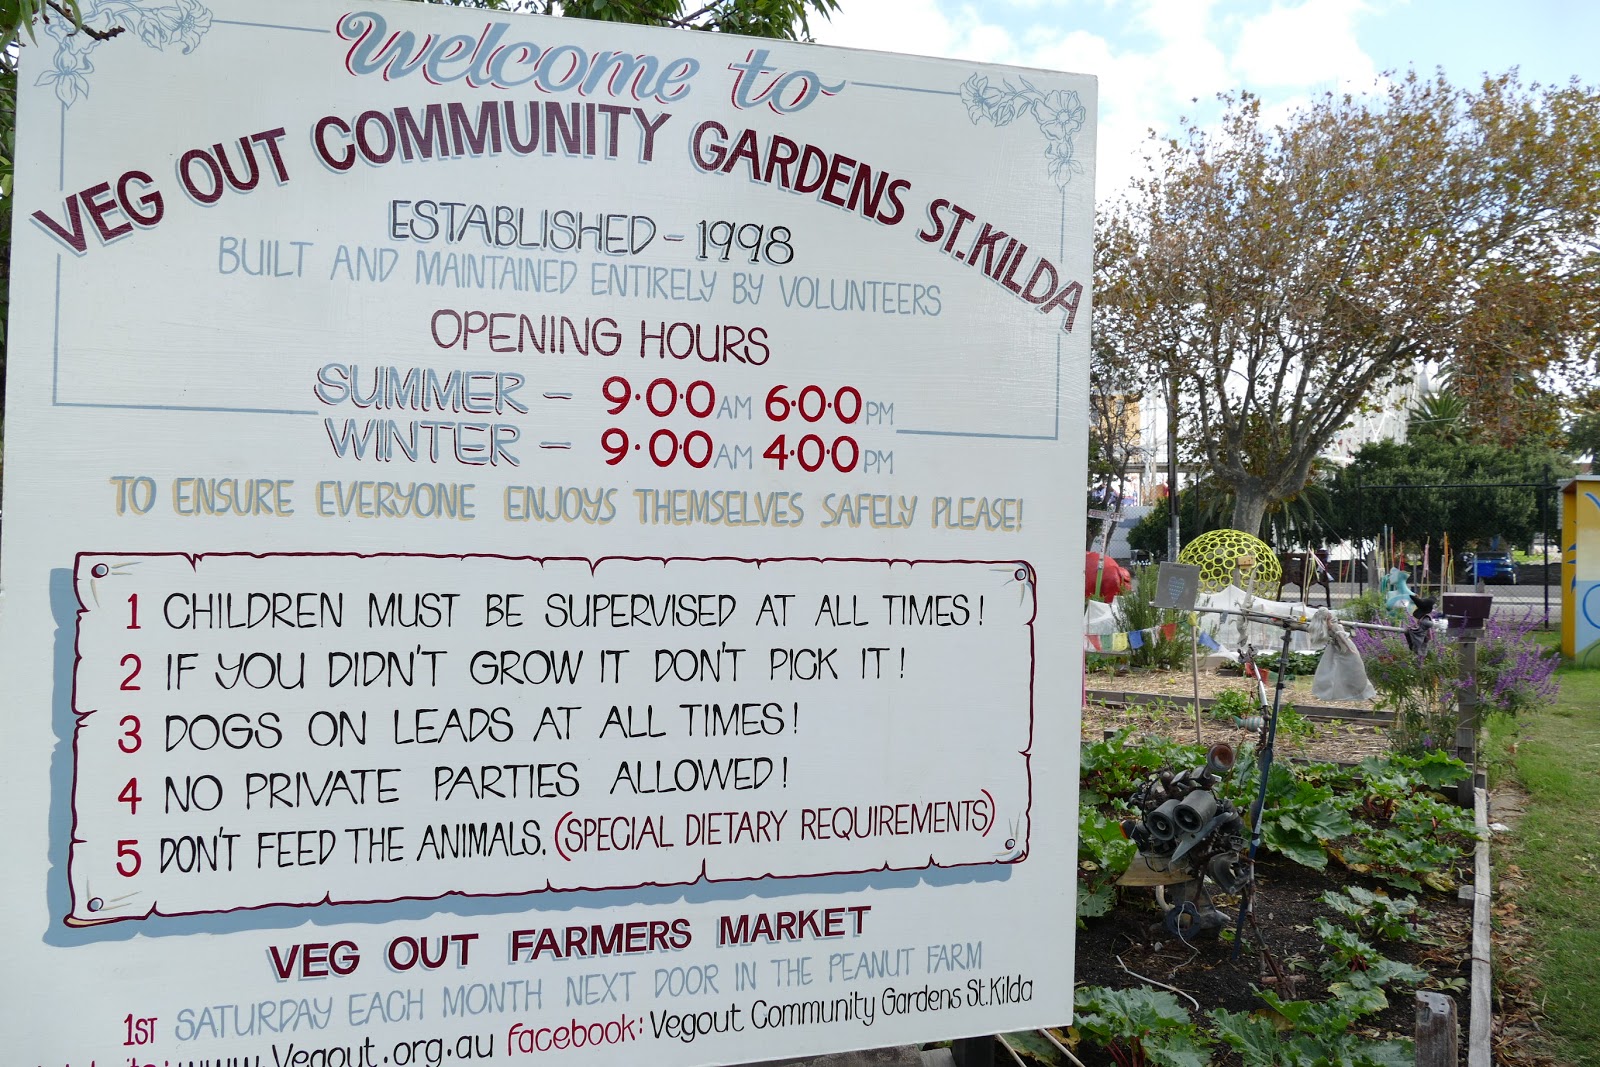 Welcome to
VEG OUT COMMUNITY GARDENS ST.KILDA
ESTABLISHED - 1998
BUILT AND MAINTAINED ENTIRELY BY VOLUNTEERS
OPENING HOURS
SUMMER - 9·0·0 AM 6·0·0 PM
WINTER - 9·0·0 AM 4·0·0 PM
TO ENSURE EVERYONE ENJOYS THEMSELVES SAFELY PLEASE!
1 CHILDREN MUST BE SUPERVISED AT ALL TIMES!
2 IF YOU DIDN'T GROW IT DON'T PICK IT!
3 DOGS ON LEADS AT ALL TIMES!
4 NO PRIVATE PARTIES ALLOWED!
5 DON'T FEED THE ANIMALS. (SPECIAL DIETARY REQUIREMENTS)
VEG OUT FARMERS MARKET
1ST SATURDAY EACH MONTH NEXT DOOR IN THE PEANUT FARM
www.Vegout.org.au facebook: Vegout Community Gardens St.Kilda